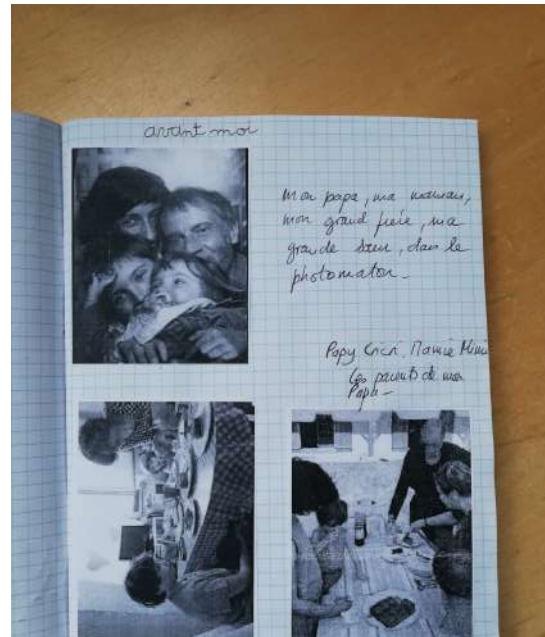 avant moi
mon papa, ma maman,
mon grand frère, ma
grande sœur, dans le
photomaton -
Papy Cricri, Mamie Mimi
Les parents de mon
Papa -